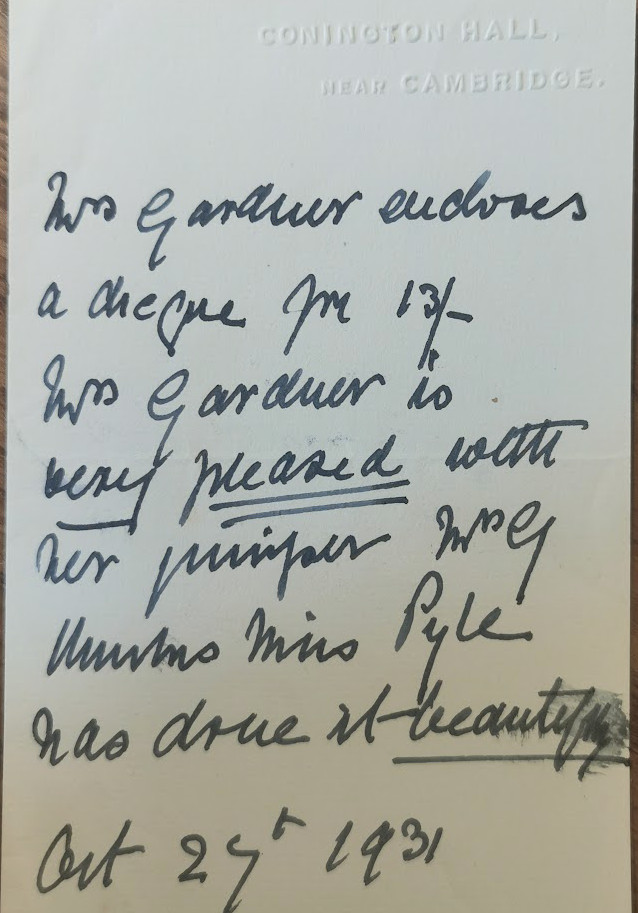 CONINGTON HALL,
NEAR CAMBRIDGE.
Mrs Gardner encloses
a cheque for 13/-
Mrs Gardner is
very pleased with
her jumper Mrs G
thinks Miss Pyle
has done it beautifully
Oct 27t 1931